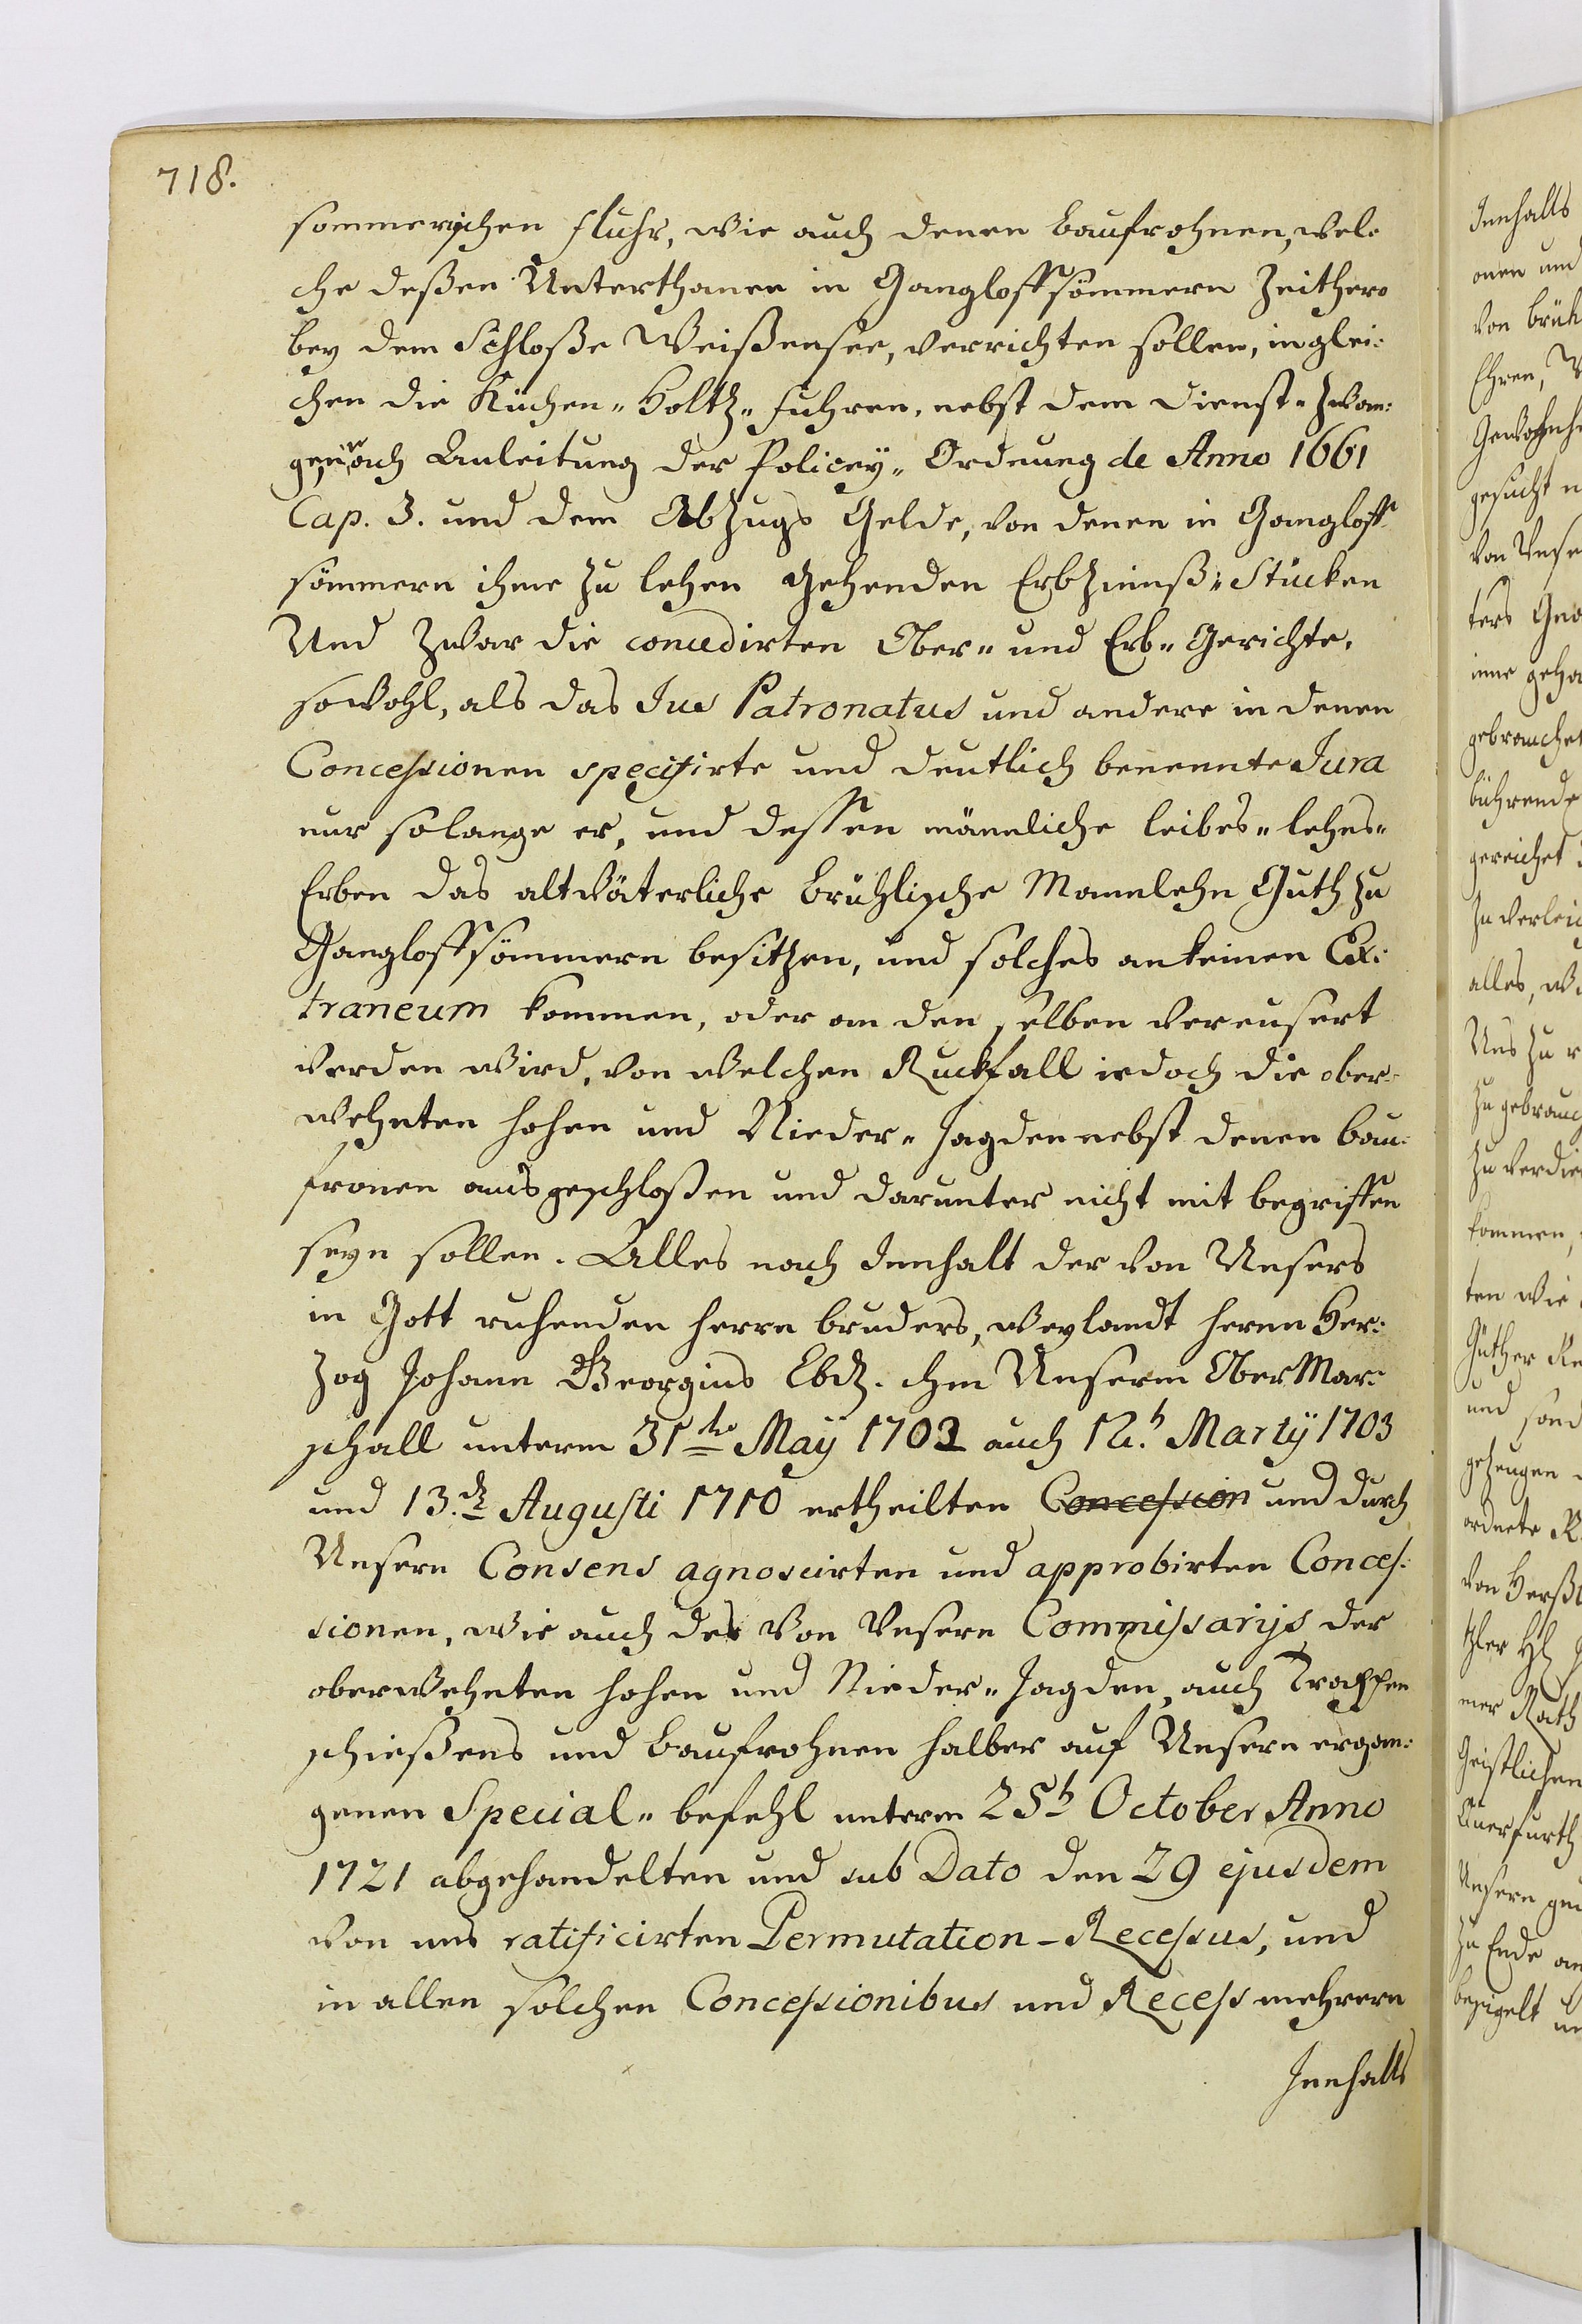 718.
sommerischen Fluhr, wie auch denen Baufrohnen, wel-
che deßen Unterthanen in Gangloffsömmern Zeithero
bey dem Schloße Weißensee, verrichten sollen, inglei-
chen die Küchen- Holtz- fuhren, nebst dem Dienst- Zwan-
ge, nach Anleitung der Policeÿ- Ordnung de Anno 1661
Cap. 3. und dem AbZugs Gelde, von denen in Gangloff-
sömmern ihme zu lehen gehenden ErbZinnß- Stücken
Und Zwar die concedirten Ober- und Erb- Gerichte,
sowohl, als das Jus Patronatus und andere in denen
Concessionen specifirte und deutlich benennte Jura
nur solange er, und dessen männliche leibes- lehns-
Erben das altväterliche Brühlische Mannlehn Guth zu
Gangloffsömmern besitzen, und solches an keinen Ex-
traneum kommen, oder an den selben vereusert
werden wird, von welchen Ruckfall iedoch die ober-
wehnten hohen und Nieder- Jagden nebst denen bau-
fronen ausgeschloßen und darunter nicht mit begriffen
seyn sollen. Alles nach Innhalt der von Unsers
in Gott ruhenden Herrn bruders, weylandt Herrn Her-
zog Johann Georgius Lbd. ihm Unserm Ober Mar-
schall unterm 31ten Maÿ 1702 auch 12.t Martÿ 1703
und 13.den Augusti 1710 ertheilten Concession und durch
Unsern Consens agnoscirten und approbirten Conces-
sionen, wie auch des von Unsern Commissarijs der
oberwehnten hohen und Nieder- Jagden, auch Trappen
schießens und Baufrohnen halber auf Unsern ergan-
genen Special- befehl unterm 25t October Anno
1721 abgehandelten und sub Dato den 29 ejusdem
von uns ratificirten Permutation- Recessus, und
in allen solchen Concessionibus und Recess mehrern
Innhalts
Innhalts
onen und
von brüh
Ehren,
Gewohnh
gesucht
von Unse
ters Gna
inne geha
gebrauchet
bührende
gereichet
zu verleic
alles,
Uns zu
zu gebrauc
zu verdie
kommen,
ten wie
Güther Re
und sond
gezeugen
ordnete R
von Herß
mer Rath
Geistlichen
Querfurth
Unsern
zu Ende an
besigelt